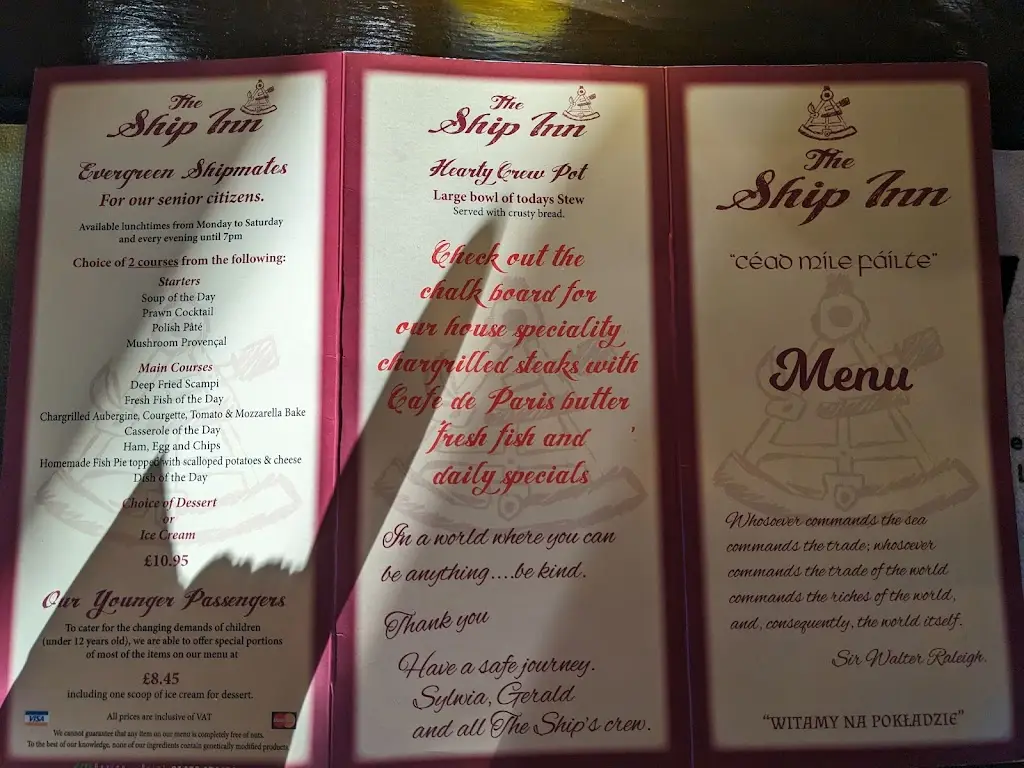 The
Ship Inn
Evergreen Shipmates
For our senior citizens.
Available lunchtimes from Monday to Saturday
and every evening until 7pm
Choice of 2 courses from the following:
Starters
Soup of the Day
Prawn Cocktail
Polish Pâté
Mushroom Provençal
Main Courses
Deep Fried Scampi
Fresh Fish of the Day
Chargrilled Aubergine, Courgette, Tomato & Mozzarella Bake
Casserole of the Day
Ham, Egg and Chips
Homemade Fish Pie topped with scalloped potatoes & cheese
Dish of the Day
Choice of Dessert
or
Ice Cream
£10.95
Our Younger Passengers
To cater for the changing demands of children
(under 12 years old), we are able to offer special portions
of most of the items on our menu at
£8.45
including one scoop of ice cream for dessert.
VISA
All prices are inclusive of VAT
We cannot guarantee that any item on our menu is completely free of nuts.
To the best of our knowledge, none of our ingredients contain genetically modified products.
The
Ship Inn
Hearty Crew Pot
Large bowl of todays Stew
Served with crusty bread.
Check out the
chalk board for
our house speciality
chargrilled steaks with
Cafe de Paris butter
fresh fish and '
daily specials
In a world where you can
be anything....be kind.
Thank you
Have a safe journey.
Sylwia, Gerald
and all The Ship's crew.
The
Ship Inn
"céad míle fáilte"
Menu
Whosoever commands the sea
commands the trade; whosoever
commands the trade of the world
commands the riches of the world,
and, consequently, the world itself.
Sir Walter Raleigh.
"WITAMY NA POKŁADZIE"